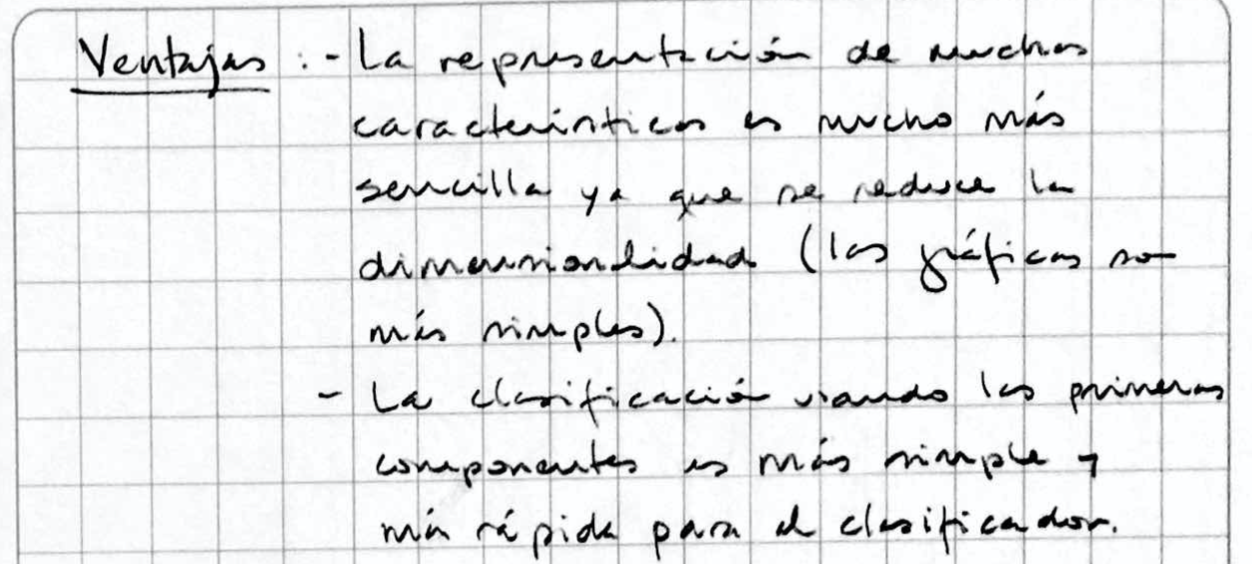 Ventajas : - La representación de muchas
características es mucho más
sencilla ya que se reduce la
dimensionalidad (las gráficas son
más simples).
- La clasificación usando las primeras
componentes es más simple y
más rápida para el clasificador.